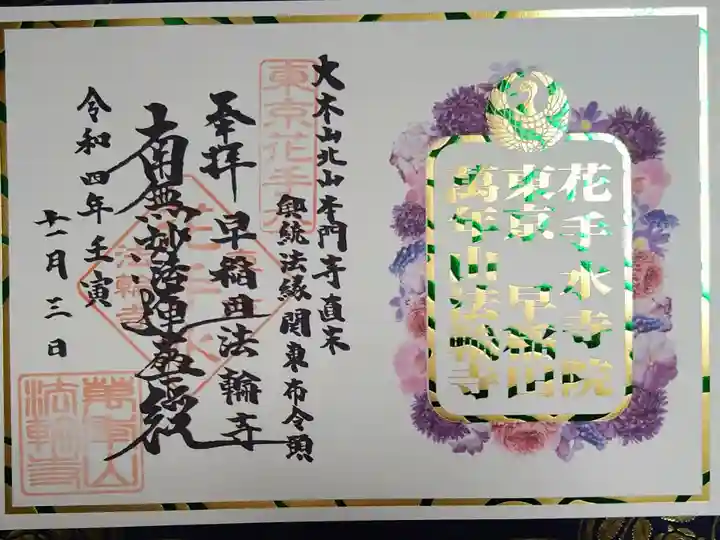 花手水寺院
東京 早稲田
萬年山法輪寺
大本山北山本門寺直末
興統法縁関東布令頭
東京花手水
奉拝 早稲田法輪寺
南無妙法蓮華経
花手水
法輪寺
令和四年壬寅
十一月三日
萬年山
法輪寺